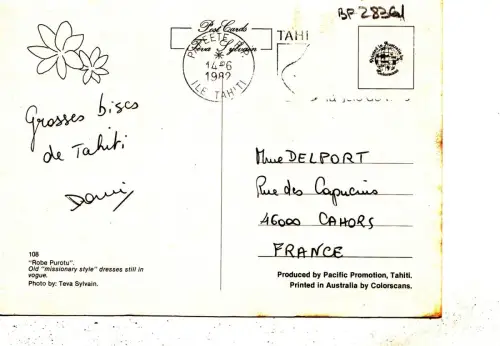 BP 28361
Post Cards
Teva Sylvain
PAPEETE R.P.
14-6
1982
ILE TAHITI
TAHI
Grosses bises
de Tahiti
Mme DELPORT
Rue des Capucins
46000 CAHORS
FRANCE
108
"Robe Purotu".
Old "missionary style" dresses still in
vogue.
Photo by: Teva Sylvain.
Produced by Pacific Promotion, Tahiti.
Printed in Australia by Colorscans.